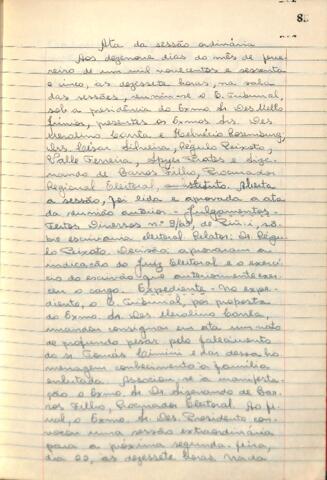 8
Ata da sessão ordinária
Aos dezenove dias do mês de feve-
reiro de um mil novecentos e sessenta
e cinco, as dezessete horas, na sala
das sessões, reuniu-se o E. Tribunal,
sob a presidência do Exmo Sr. Des Mello
Júnior, presentes os Exmos Srs. Des.
Merolino Corrêa e Helvécio Rosenburg,
Drs. César Silveira, Régulo Peixoto,
Valle Ferreira, Apyes Prates e Dize-
nando de Barros Filho, Procurador
Regional Eleitoral, substituto. Aberta
a sessão, foi lida e aprovada a ata
da reunião anterior - Julgamentos -
Feitos Diversos nº 9/65, de Piu-i, so-
bre escrivania eleitoral Relator: Dr Régu-
lo Peixoto. Decisão: aprovaram a
indicação do Juiz Eleitoral e o exercí-
cio do escrivão que anteriormente exer-
ceu o cargo. Expediente - No expe-
diente, o E. Tribunal, por proposta
do Exmo Sr Des Merolino Corrêa,
mandou consignar em ata um voto
de profundo pesar pelo falecimento
do sr Tomás Cimini e dar dessa ho
menagem conhecimento à família
enlutada. Associou-se a manifesta-
ção o Exmo Sr Dr Dizenando de Bar-
ros Filho, Procurador Eleitoral. Ao fi-
nal, o Exmo Sr Des. Presidente con-
vocou uma sessão extraordinária
para a próxima segunda-feira,
dia 22, as dezessete horas Nada